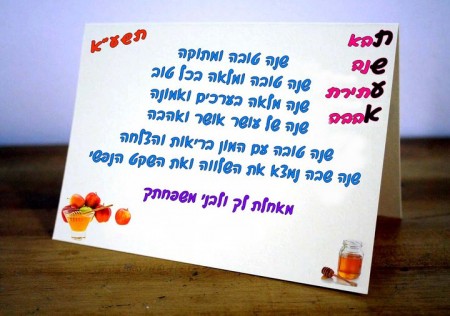 תשע"א
תבא
שנה
עתירת
אהבה
שנה טובה ומתוקה
שנה טובה ומלאה בכל טוב
שנה מלאה בערכים ואמונה
שנה של עושר אושר ואהבה
שנה טובה עם המון בריאות והצלחה
שנה שבה נמצא את השלווה ואת השקט הנפשי
מאחלת לך ולבני משפחתך